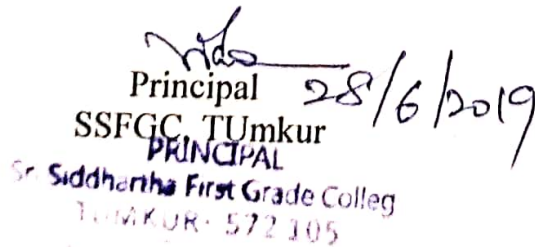 Principal 28/6/2019
SSFGC, TUmkur
PRINCIPAL
Sr. Siddhartha First Grade Colleg
TUMKUR- 572 105